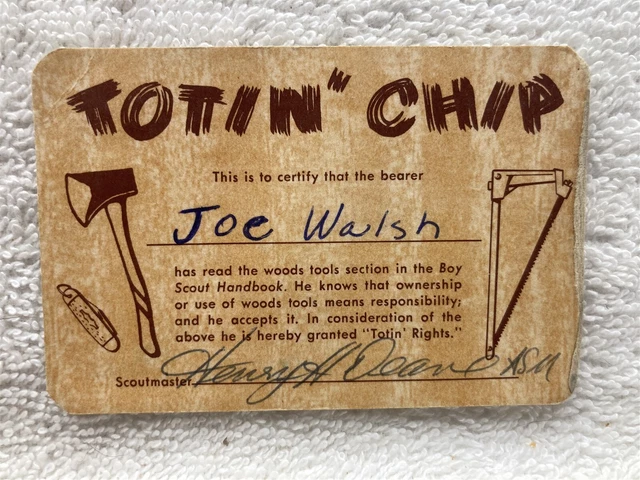 TOTIN" CHIP
This is to certify that the bearer
Joe Walsh
has read the woods tools section in the Boy
Scout Handbook. He knows that ownership
or use of woods tools means responsibility;
and he accepts it. In consideration of the
above he is hereby granted "Totin' Rights."
Scoutmaster Henry H Deane ASM